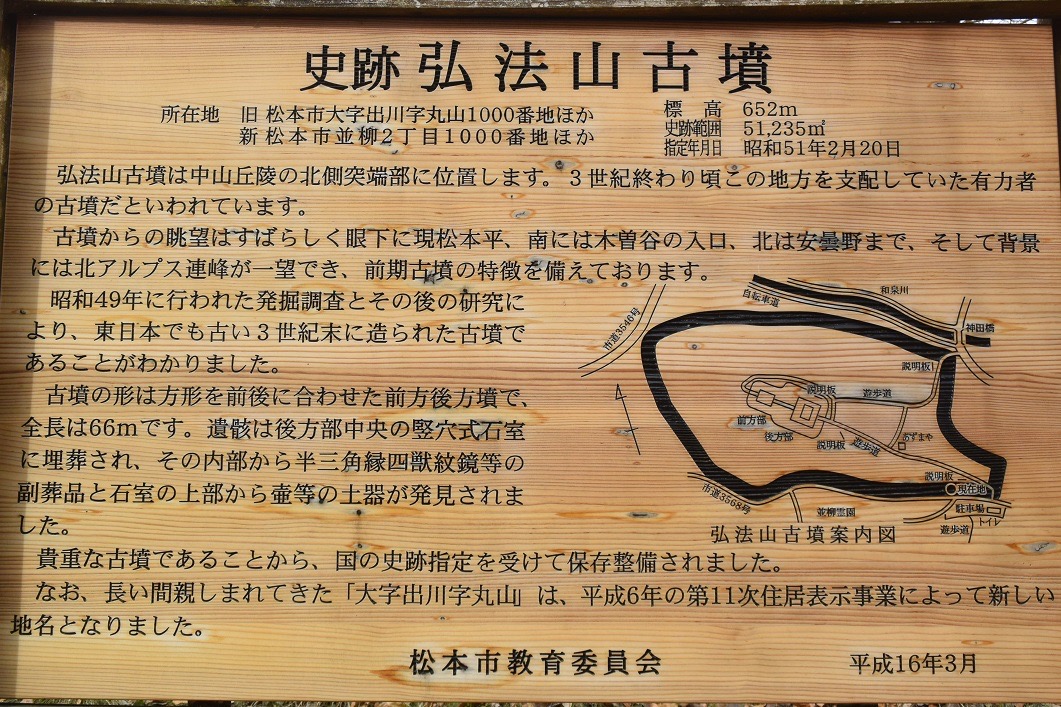 史跡 弘法山古墳
所在地 旧 松本市大字出川字丸山1000番地ほか
新 松本市並柳2丁目1000番地ほか
標高 652m
史跡範囲 51,235㎡
指定年月日 昭和51年2月20日
弘法山古墳は中山丘陵の北側突端部に位置します。3世紀終わり頃この地方を支配していた有力者
の古墳だといわれています。
古墳からの眺望はすばらしく眼下に現松本平、南には木曽谷の入口、北は安曇野まで、そして背景
には北アルプス連峰が一望でき、前期古墳の特徴を備えております。
昭和49年に行われた発掘調査とその後の研究に
より、東日本でも古い3世紀末に造られた古墳で
あることがわかりました。
古墳の形は方形を前後に合わせた前方後方墳で、
全長は66mです。遺骸は後方部中央の竪穴式石室
に埋葬され、その内部から半三角縁四獣紋鏡等の
副葬品と石室の上部から壷等の土器が発見されま
した。
貴重な古墳であることから、国の史跡指定を受けて保存整備されました。
なお、長い間親しまれてきた「大字出川字丸山」は、平成6年の第11次住居表示事業によって新しい
地名となりました。
和泉川
自転車道
市道3546号
神田橋
説明板
説明板
遊歩道
前方部
後方部
説明板
遊歩道
あずまや
説明板
現在地
市道3568号
並柳霊園
駐車場
トイレ
遊歩道
弘法山古墳案内図
松本市教育委員会
平成16年3月